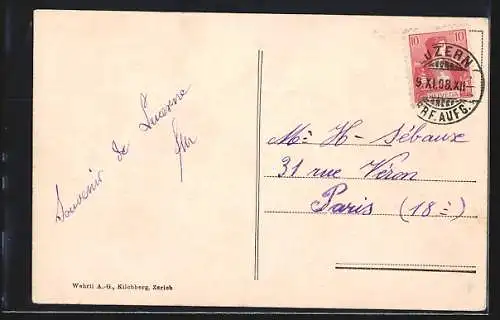 Souvenir de Lucerne
10 10
HELVETIA
LUZERN
9.XI.08.XII-
BRF. AUFG.
Mr H- Sébaux
31 rue Véron
Paris (18e)
Wehrli A.-G., Kilchberg, Zürich